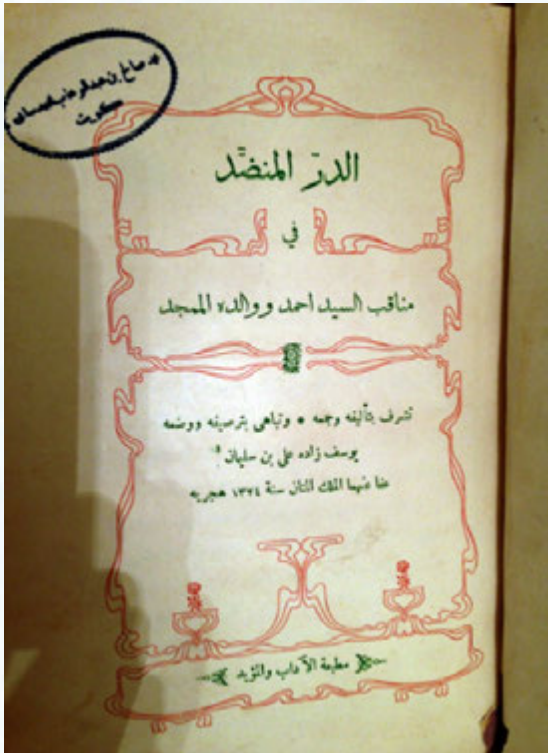 كويت
الدرّ المنضَّد
في
مناقب السيد احمد ووالده الممجد
تشرف بتأليفه وجمعه * وتباهى بترصيفه ووضعه
يوسف زاده على بن سليمان
عفا عنهما الملك المنان سنة ١٣٢٤ هجريه
مطبعة الآداب والمؤيد